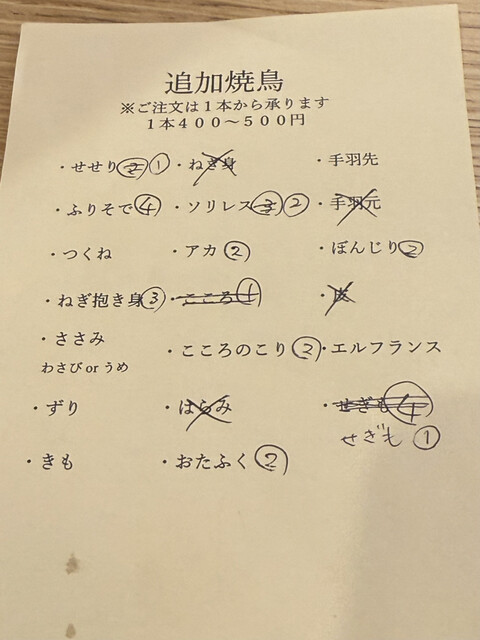 追加焼鳥
※ご注文は1本から承ります
1本400〜500円
・せせり ② ① ・ねぎ身 ・手羽先
・ふりそで ④ ・ソリレス ③ ② ・手羽元
・つくね ・アカ ② ・ぼんじり ②
・ねぎ抱き身 ③ ・こころ ① ・皮
・ささみ
わさび or うめ
・こころのこり ② ・エルフランス
・ずり ・はらみ ・せぎも ④
せぎも ①
・きも ・おたふく ②